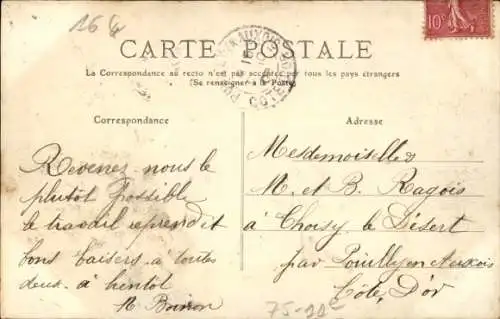 16
10c
CARTE POSTALE
La Correspondance au recto n'est pas acceptée par tous les pays étrangers
(Se renseigner à la Poste)
Correspondance
Revenez nous le
plutot possible
le travail reprend et
bons baisers à toutes
deux. à bientot
Adresse
Mesdemoiselles
M. et B. Ragois
à Choisy le Désert
par Pouilly en Auxois
Côte d'Or
75-